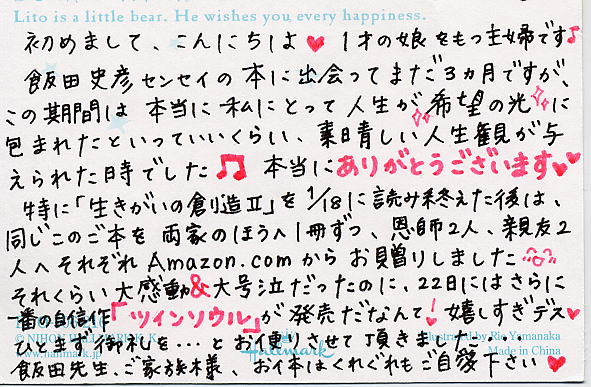 Lito is a little bear. He wishes you every happiness.
初めまして、こんにちは♥ 1才の娘をもつ主婦です♪
飯田史彦センセイの本に出会ってまだ3ヵ月ですが、
この期間は 本当に 私にとって 人生が 希望の光 に
包まれたといっていいくらい、素晴しい人生観が与
えられた時でした♫ 本当にありがとうございます♥♥
特に「生きがいの創造Ⅱ」を 1/18に読み終えた後は、
同じこのご本を 両家のほうへ1冊ずつ、恩師2人、親友2
人へそれぞれ Amazon.com から お贈りしました
それくらい 大感動&大号泣だったのに、22日にはさらに
一番の自信作「ツインソウル」が 発売だなんて! 嬉しすぎデス♥
ひとまず 御礼を…と お便りさせて 頂きました…
飯田先生、ご家族様、お体はくれぐれもご自愛下さい ♥
© NIHON
www.hallmark.jp
Hallmark
Illustrated by Rie Yamanaka
Made in China